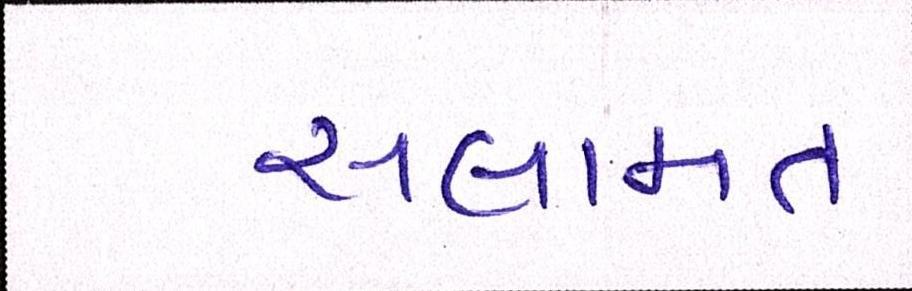 સલામત